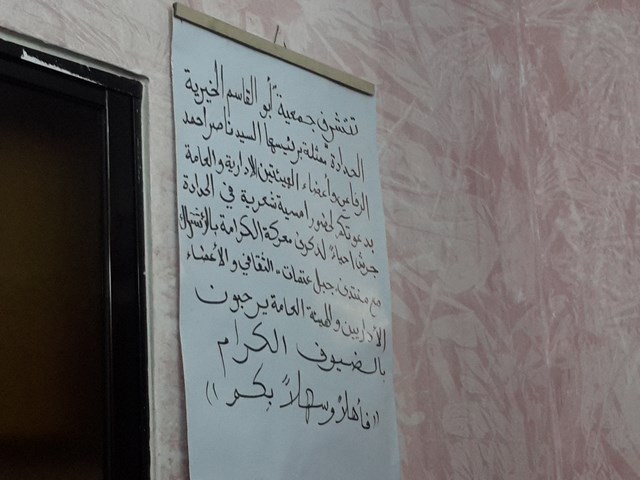 تتشرف جمعية "أبو القاسم الخيرية
الحدادة ممثلة برئيسها السيد ناصر احمد
الرفاعي وأعضاء الهيئتين الادارية والعامة
بدعوتكم لحضور امسية شعرية في الحدادة
جرش احياءً لذكرى معركة الكرامة بالاشتراك
مع منتدى جبل عتمات الثقافي والأعضاء
الأداريين والهيئة العامة يرحبون
بالضيوف الكرام
((فأهلاً وسهلاً بكو))